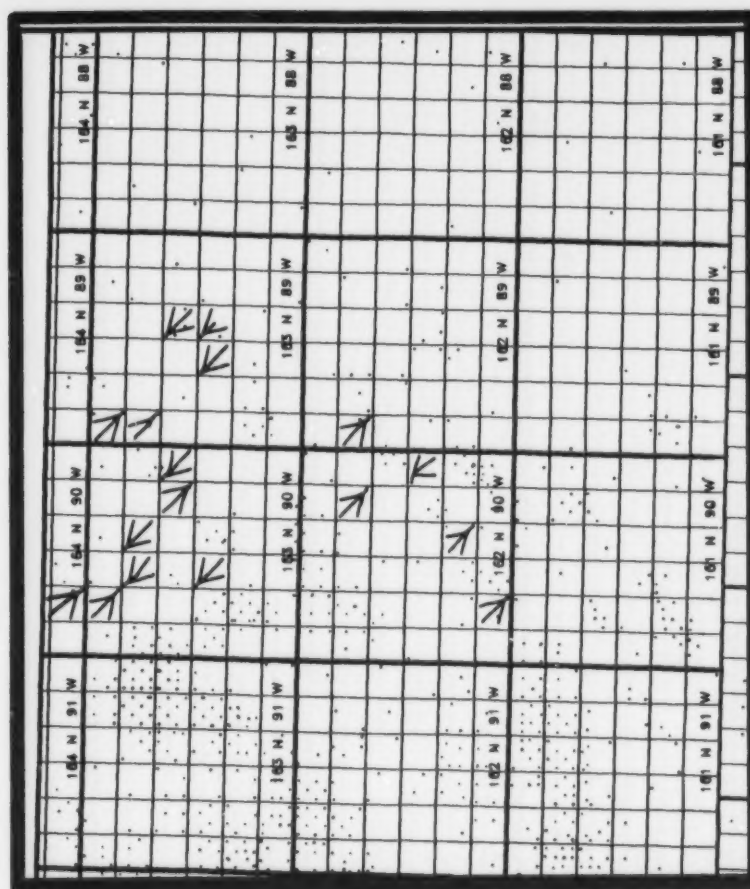 164 N 88 W
163 N 88 W
162 N 88 W
161 N 88 W
164 N 89 W
163 N 89 W
162 N 89 W
161 N 89 W
164 N 90 W
163 N 90 W
162 N 90 W
161 N 90 W
164 N 91 W
163 N 91 W
162 N 91 W
161 N 91 W